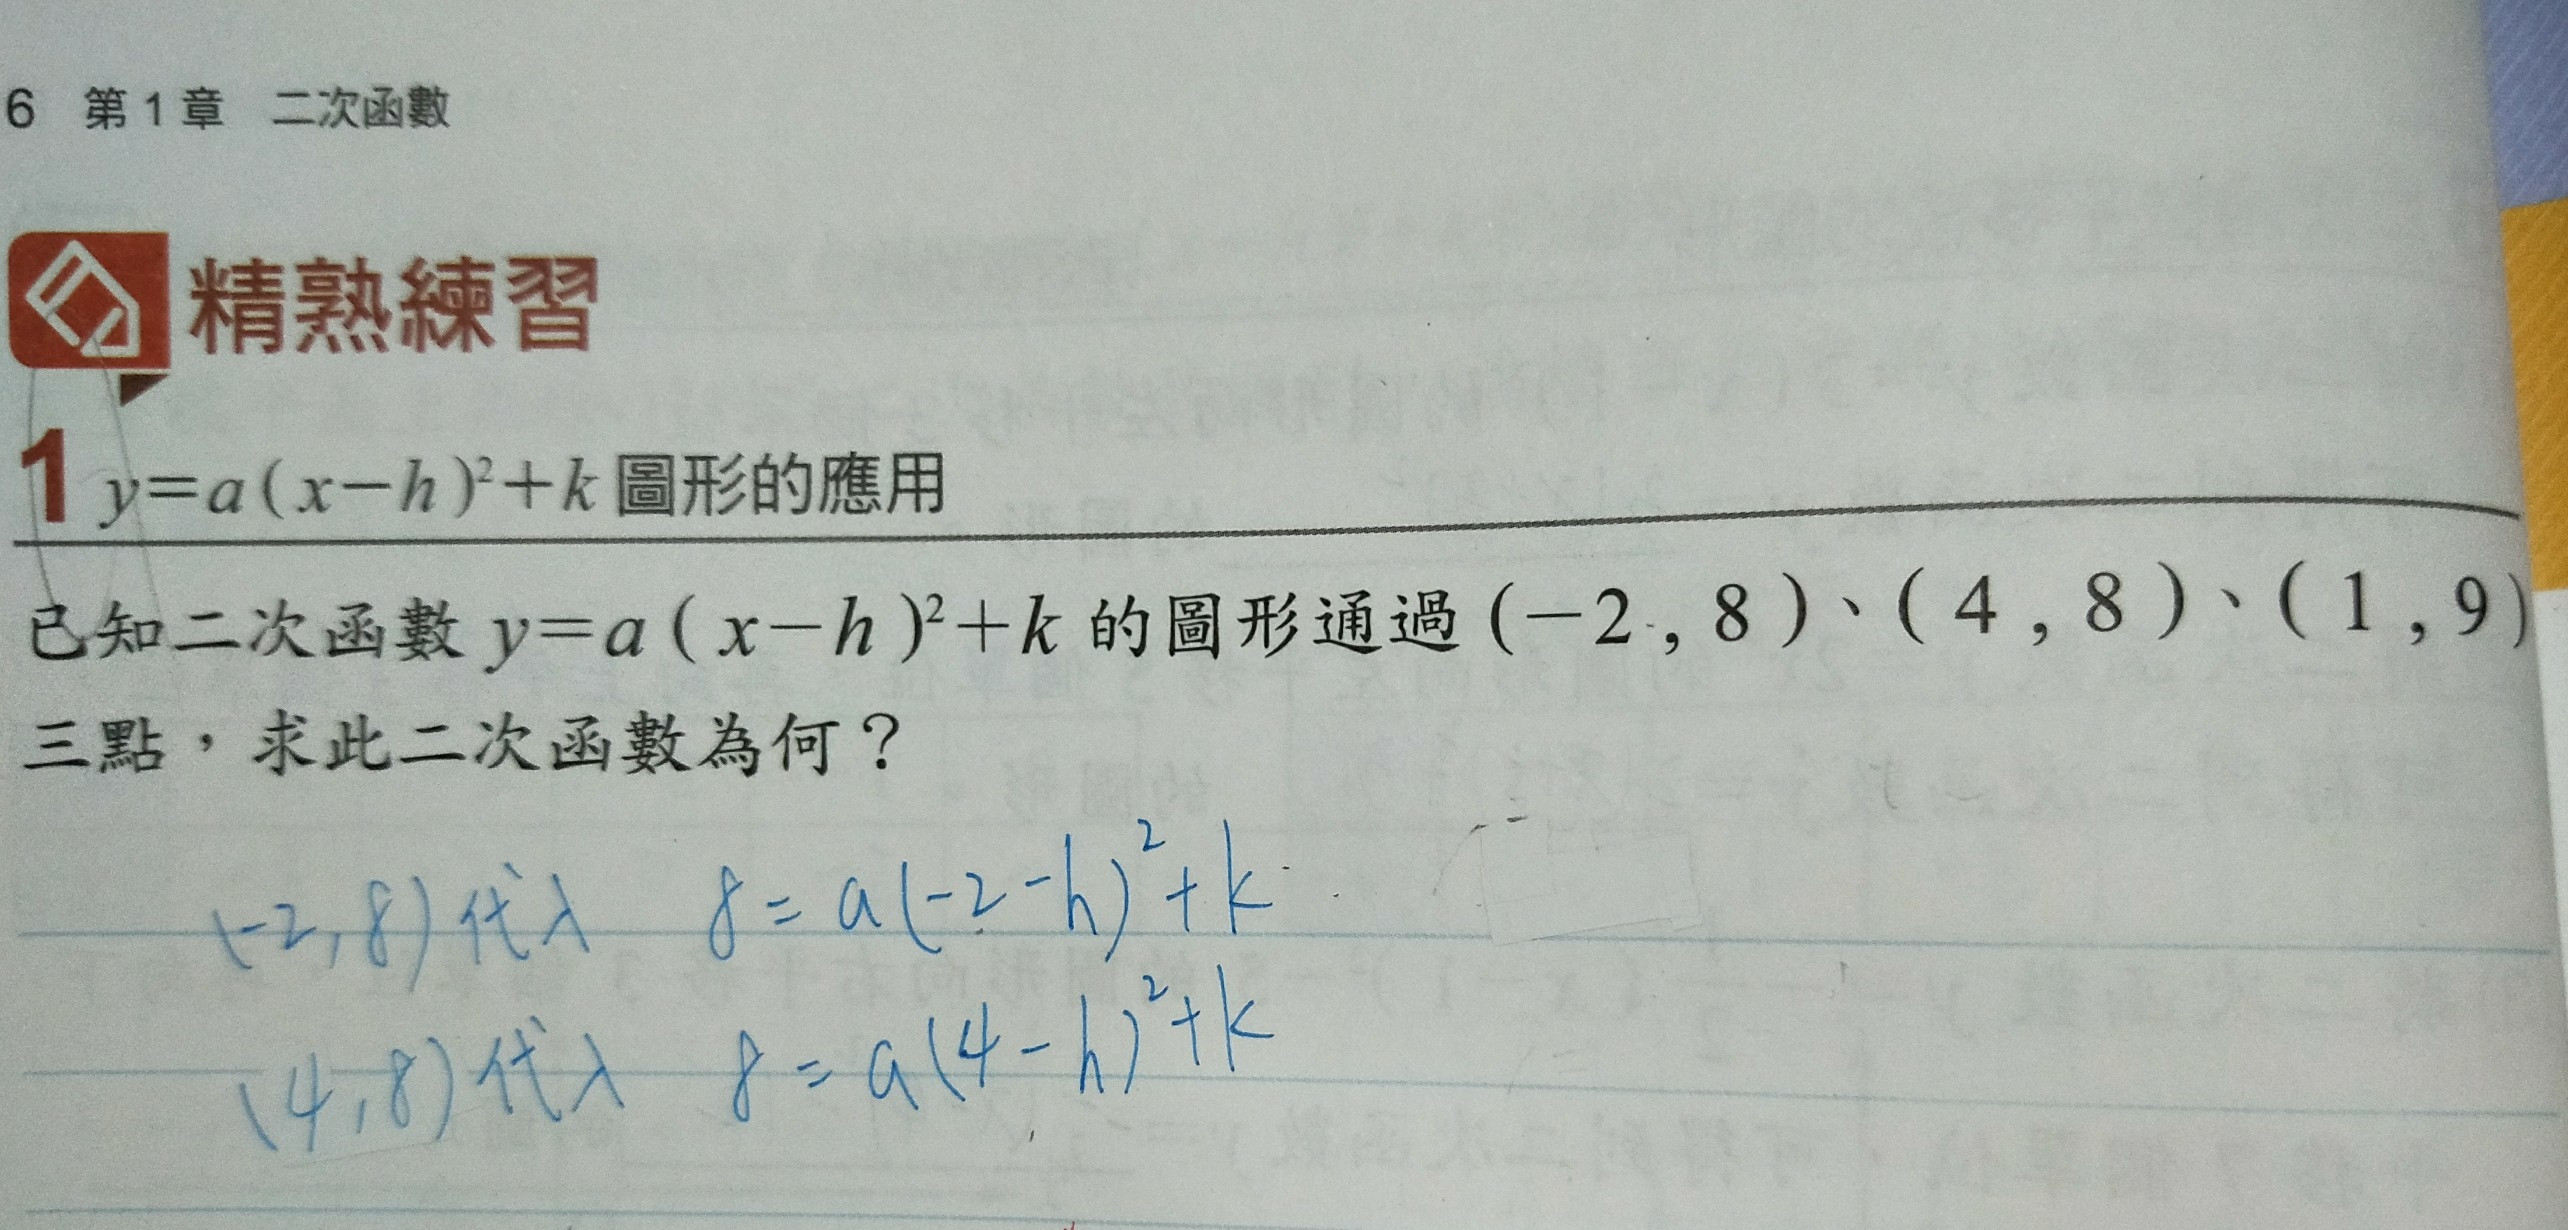 6 第1章 二次函數
精熟練習
1 y=a(x-h)²+k圖形的應用
已知二次函數 y=a(x-h)²+k 的圖形通過(-2,8)、(4,8)、(1,9)
三點,求此二次函數為何?
(-2,8)代入 8=a(-2-h)²+k
(4,8)代入 8=a(4-h)²+k